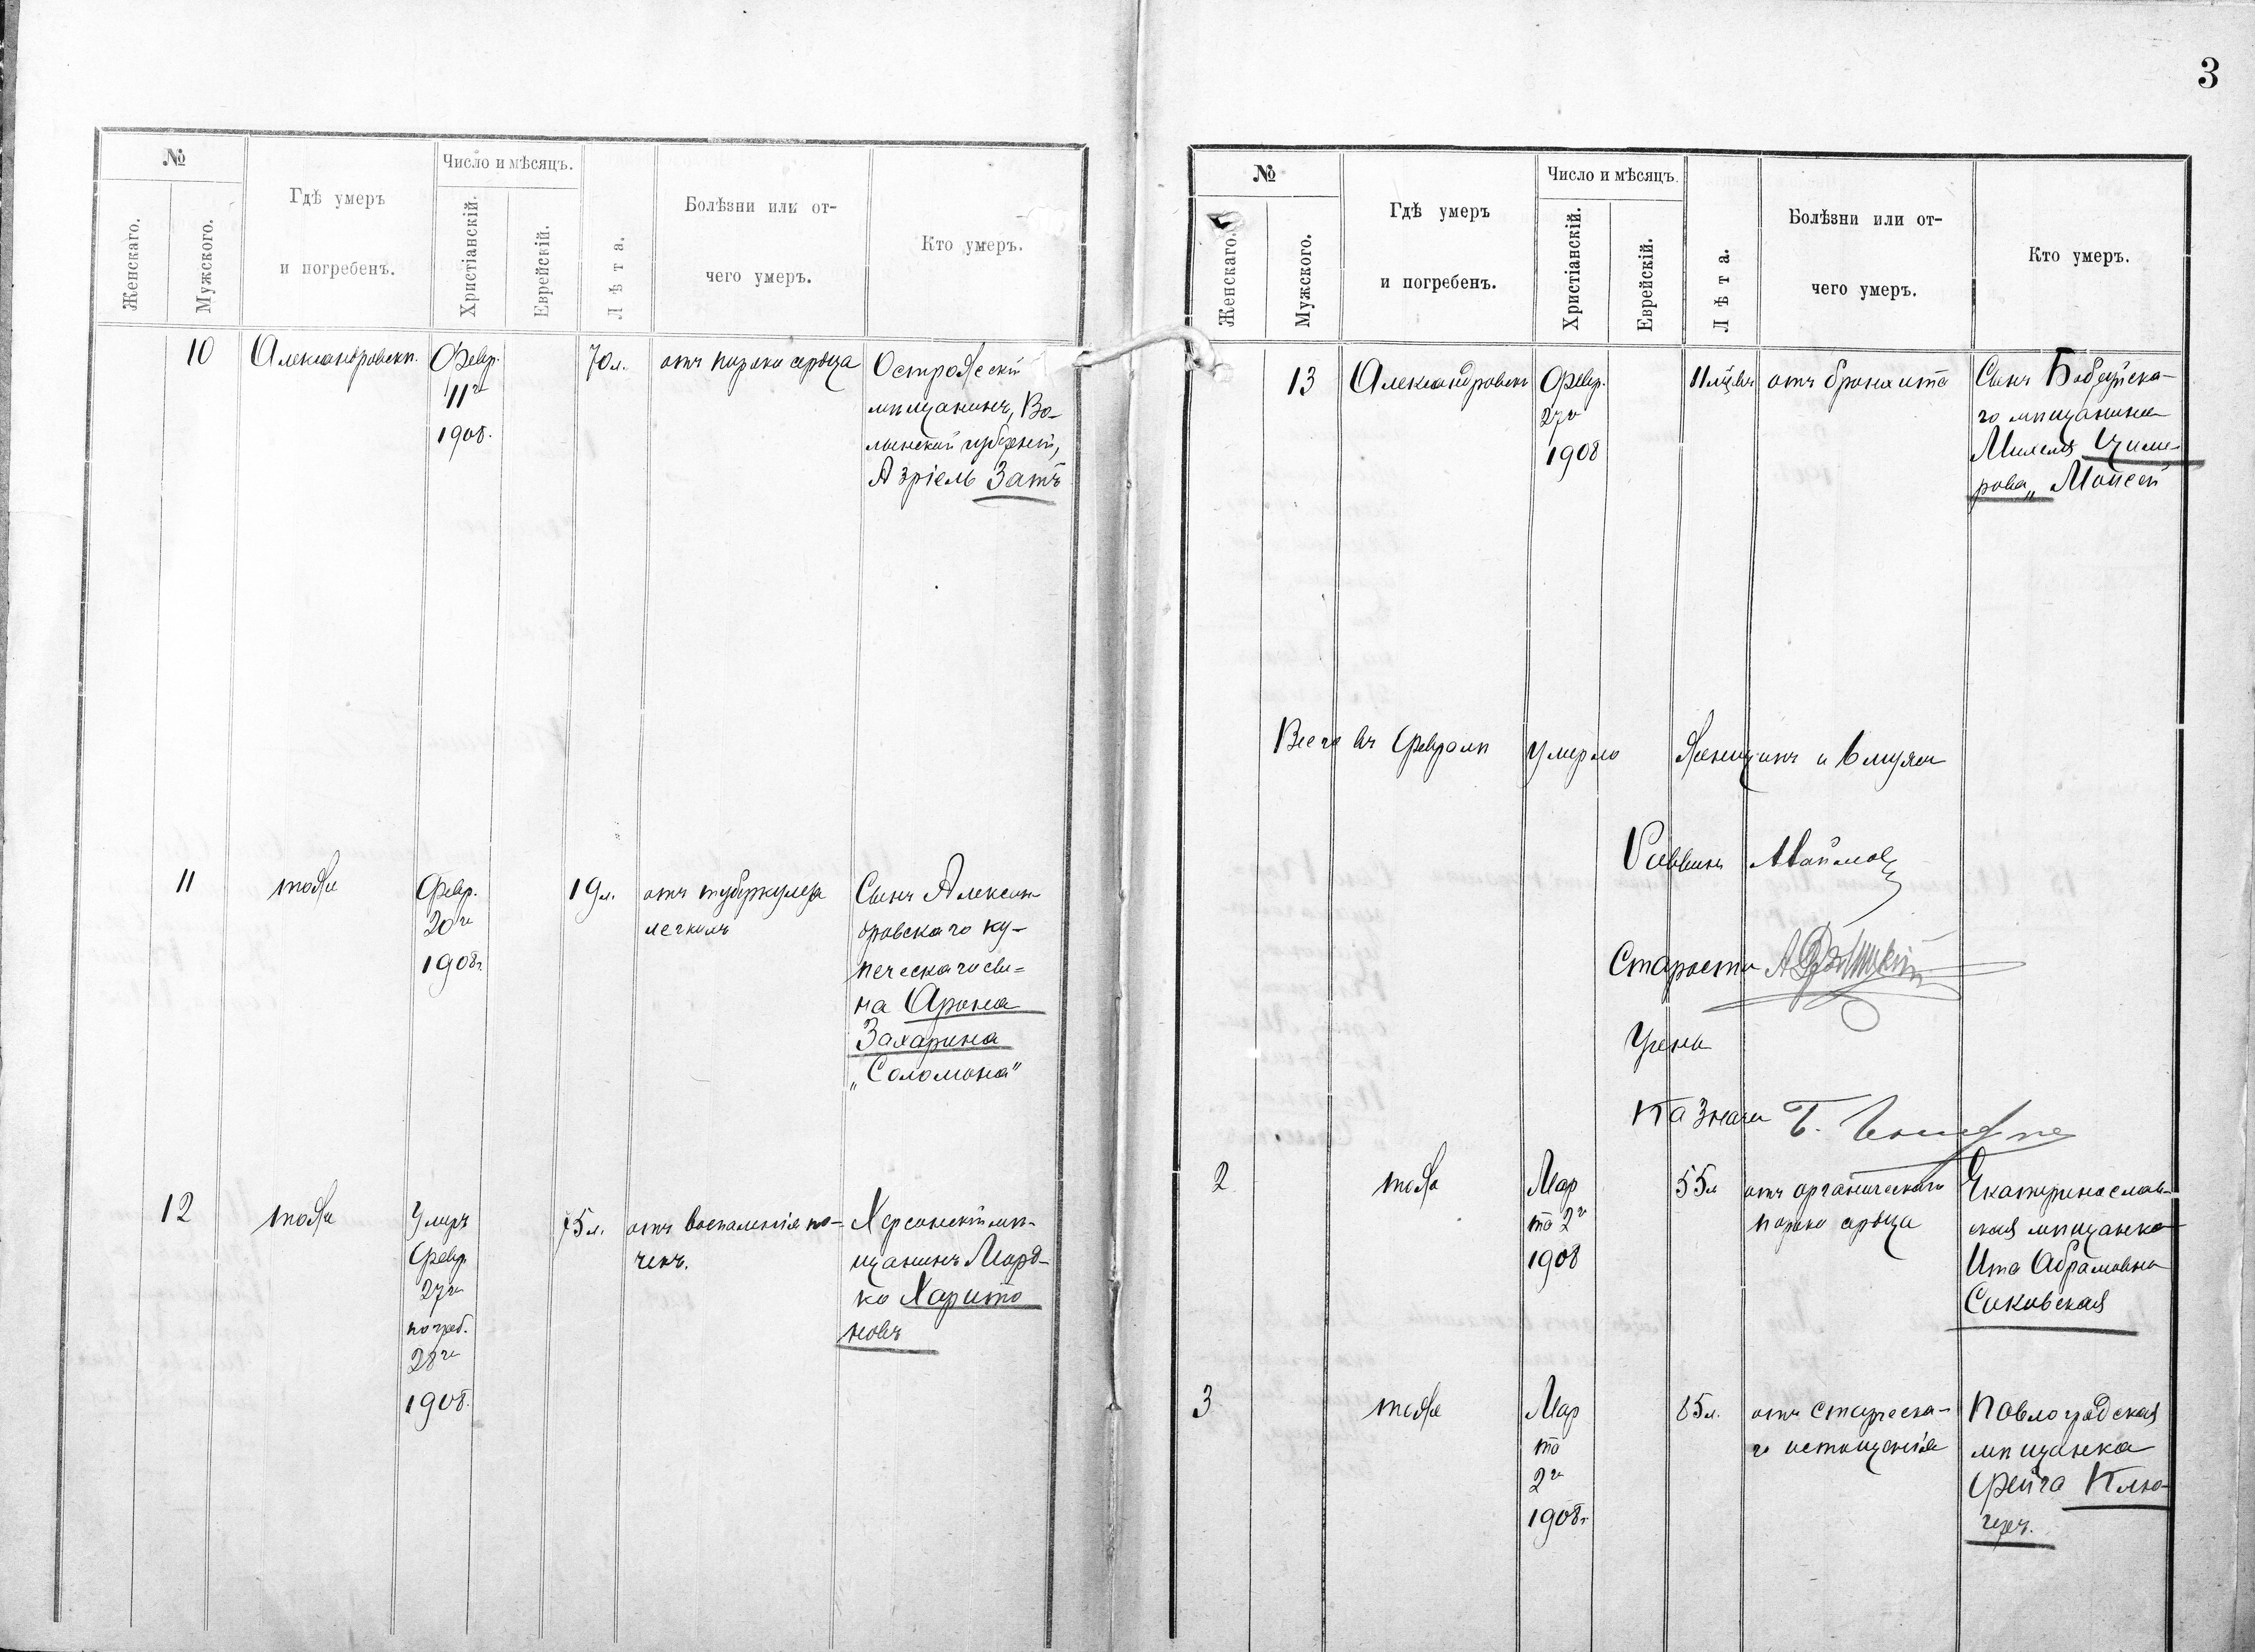 №
Женскаго.
Мужского.
Гдѣ умеръ
и погребенъ.
Число и мѣсяцъ.
Христіанскій.
Еврейскій.
Лѣта.
Болѣзни или от-
чего умеръ.
Кто умеръ.
10
Александровскѣ.
Февр.
11го
1908.
70 л.
отъ порока сердца
Острожскій
мѣщанинъ, Во-
лынской губерніи,
Азріель Затъ
11
тоже
Февр.
20го
1908 г.
19 л.
отъ туберкулеза
легкихъ
Сынъ Алексан-
дровскаго ку-
печескаго сы-
на Арона
Захарина
„Соломона"
12
тоже
Умеръ
Февр.
27го
погреб.
28го
1908.
75 л.
отъ воспаленія по-
чекъ.
Херсонскій мѣ-
щанинъ Морд-
ко Харито
новъ
3
№
Женскаго.
Мужского.
Гдѣ умеръ
и погребенъ.
Число и мѣсяцъ.
Христіанскій.
Еврейскій.
Лѣта.
Болѣзни или от-
чего умеръ.
Кто умеръ.
13
Александровскѣ
Февр.
27го
1908
11 мѣсяц
отъ бронхита
Сынъ Бобруйска-
го мѣщанина
Михеля Циме-
рова„ Моисей
Всего въ Февралѣ умерло женщинъ и 6 мужч
Раввинъ
Староста
Учены
Казначей
2
тоже
Мар
та 2го
1908
55 л
отъ органическаго
порока сердца
Екатеринослав-
ская мѣщанка
Ита Абрамовна
Саковская
3
тоже
Мар
та
2го
1908 г.
85 л.
отъ старческа-
го истощенія
Павлоградская
мѣщанка
Фейга Клю-
геръ.